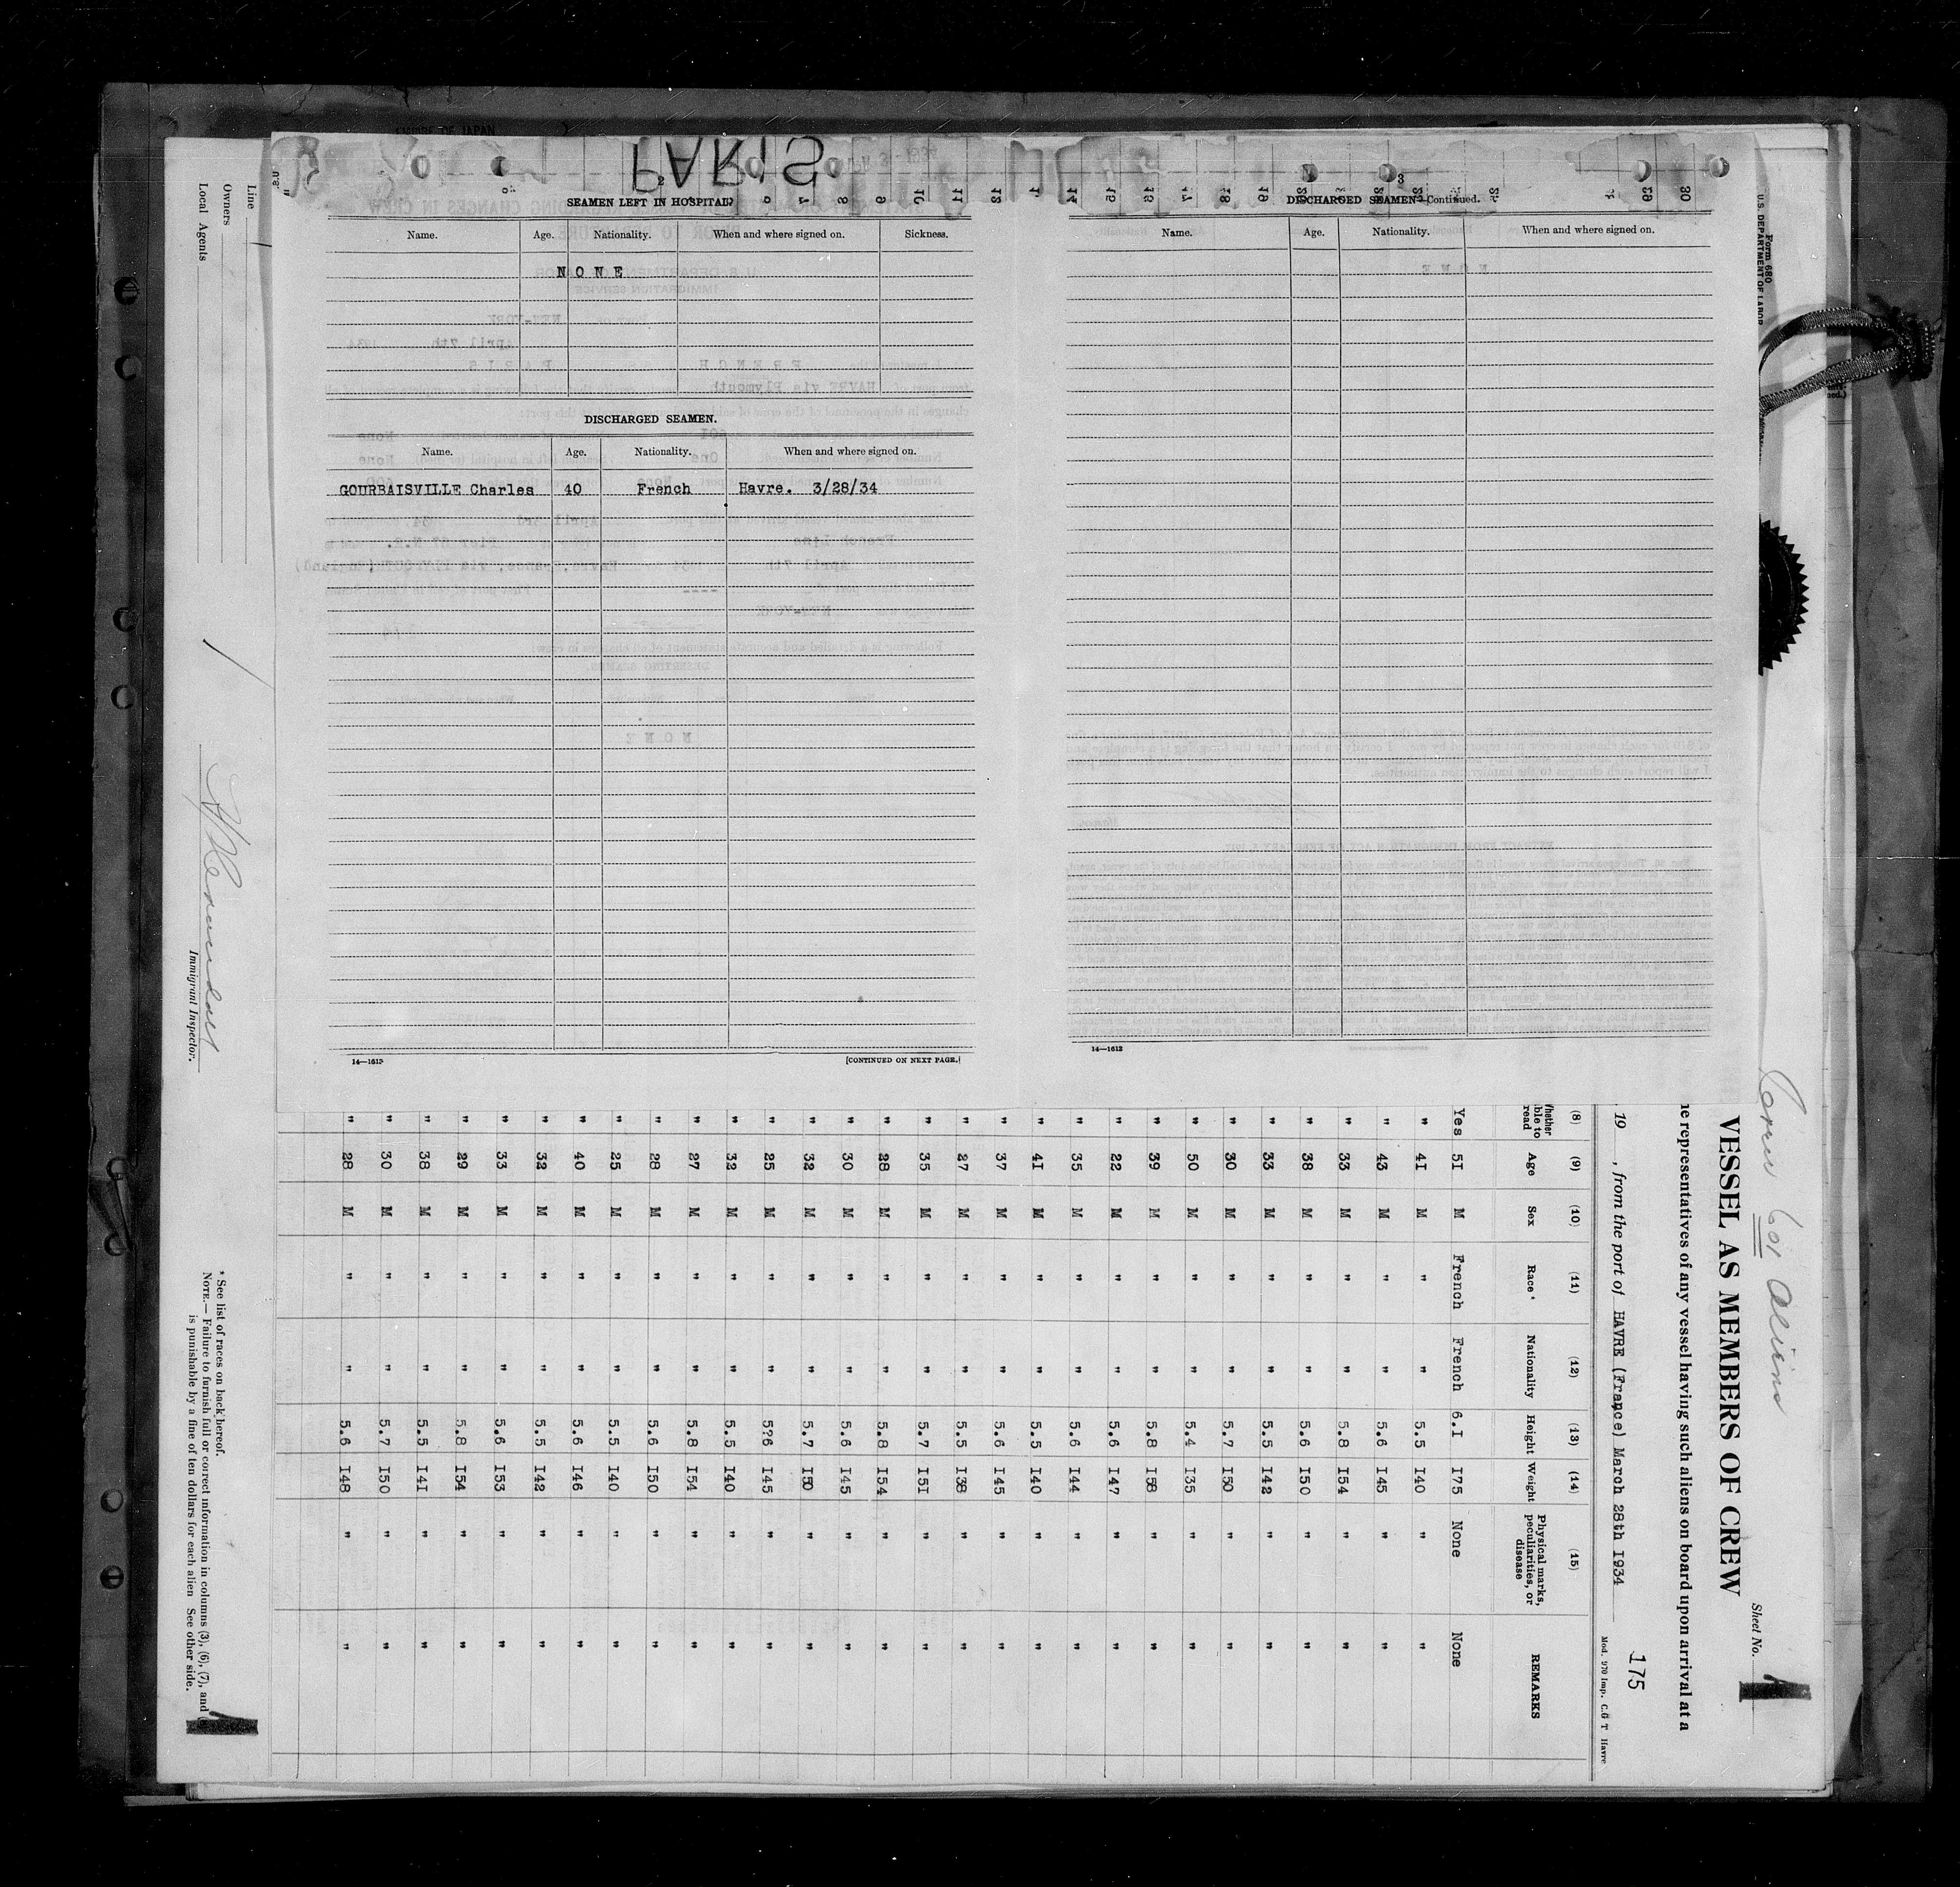 PARIS
2
SEAMEN LEFT IN HOSPITAL.
Name. Age. Nationality. When and where signed on. Sickness.
NONE
DISCHARGED SEAMEN.
Name. Age. Nationality. When and where signed on.
GOURBAISVILLE Charles 40 French Havre. 3/28/34
14—1613
[CONTINUED ON NEXT PAGE.]
3
DISCHARGED SEAMEN—Continued.
Name. Age. Nationality. When and where signed on.
14—1613
Form 680
U.S. DEPARTMENT OF LABOR
601 Aliens
Sheet No. 1
VESSEL AS MEMBERS OF CREW
representatives of any vessel having such aliens on board upon arrival at a
175
19 , from the port of HAVRE (France) March 28th I934
Mod. 970 Imp. C.G T Havre
(8) (9) (10) (11) (12) (13) (14) (15)
Whether able to read Age Sex Race * Nationality Height Weight Physical marks, peculiarities, or disease REMARKS
Yes 5I M French French 6.I I75 None None
" 4I M " " 5.5 I40 " "
" 43 M " " 5.6 I45 " "
" 33 M " " 5.8 I54 " "
" 38 M " " 5.6 I50 " "
" 33 M " " 5.5 I42 " "
" 30 M " " 5.7 I50 " "
" 50 M " " 5.4 I35 " "
" 39 M " " 5.8 I58 " "
" 22 M " " 5.6 I47 " "
" 35 M " " 5.6 I44 " "
" 4I M " " 5.5 I40 " "
" 37 M " " 5.6 I45 " "
" 27 M " " 5.5 I38 " "
" 35 M " " 5.7 I5I " "
" 28 M " " 5.8 I54 " "
" 30 M " " 5.6 I45 " "
" 32 M " " 5.7 I50 " "
" 25 M " " 5?6 I45 " "
" 32 M " " 5.5 I40 " "
" 27 M " " 5.8 I54 " "
" 28 M " " 5.6 I50 " "
" 25 M " " 5.5 I40 " "
" 40 M " " 5.6 I46 " "
" 32 M " " 5.5 I42 " "
" 33 M " " 5.6 I53 " "
" 29 M " " 5.8 I54 " "
" 38 M " " 5.5 I4I " "
" 30 M " " 5.7 I50 " "
" 28 M " " 5.6 I48 " "
Line
Owners
Local Agents
Immigrant Inspector.
* See list of races on back hereof.
NOTE.— Failure to furnish full or correct information in columns (3), (6), (7), and
is punishable by a fine of ten dollars for each alien See other side.
1